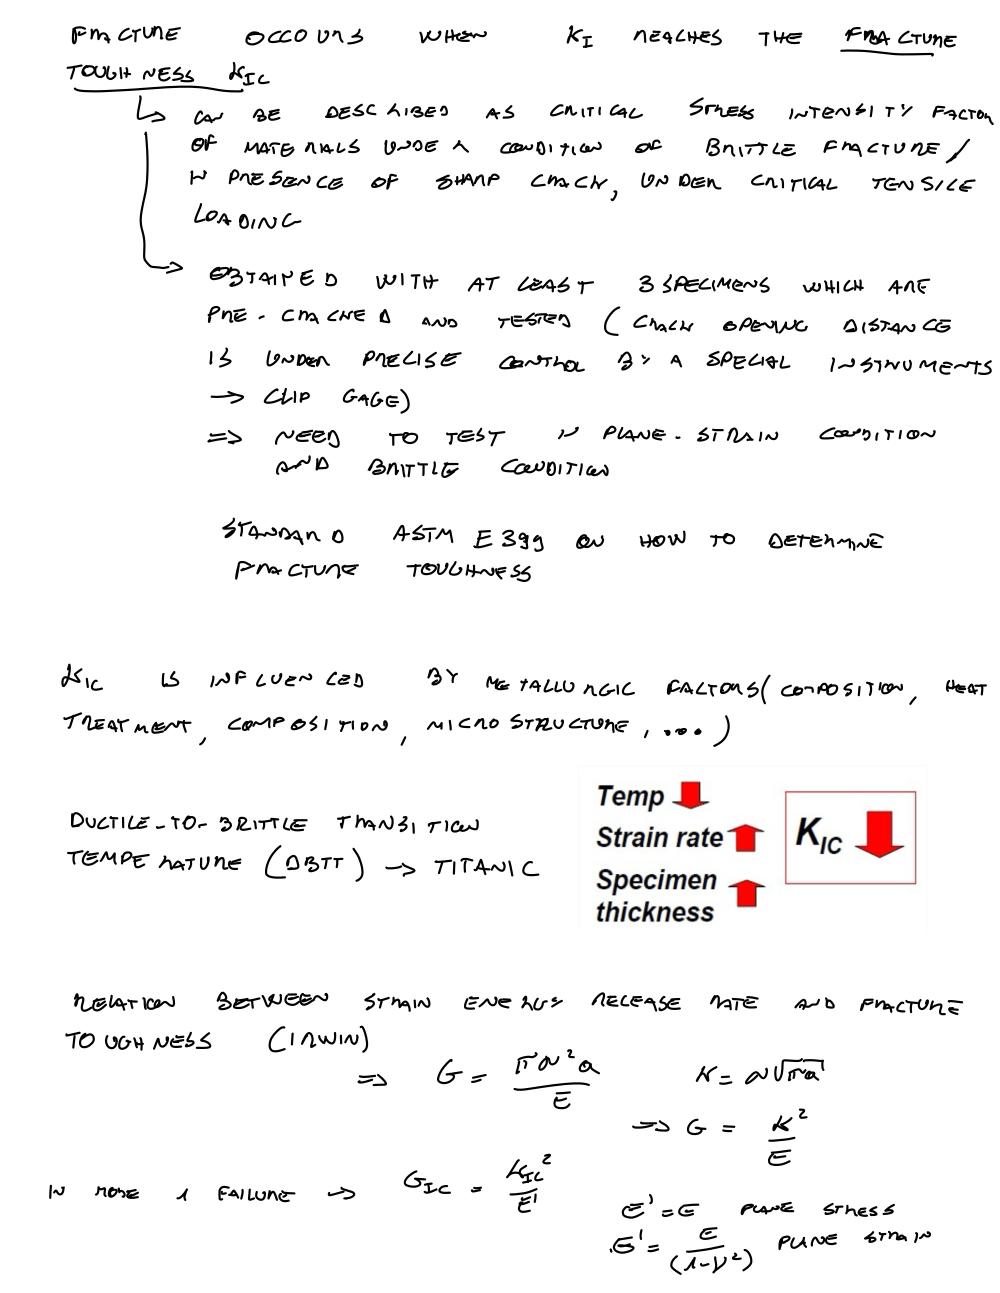 FRACTURE OCCOURS WHEN K_I REACHES THE FRACTURE
TOUGHNESS K_IC
↳ CAN BE DESCRIBED AS CRITICAL STRESS INTENSITY FACTOR
OF MATERIALS UNDER CONDITION OF BRITTLE FRACTURE/
IN PRESENCE OF SHARP CRACK, UNDER CRITICAL TENSILE
LOADING
→ OBTAINED WITH AT LEAST 3 SPECIMENS WHICH ARE
PRE-CRACKED AND TESTED (CRACK OPENING DISTANCE
IS UNDER PRECISE CONTROL BY A SPECIAL INSTRUMENTS
→ CLIP GAGE)
=> NEED TO TEST IN PLANE-STRAIN CONDITION
AND BRITTLE CONDITION
STANDARD ASTM E399 ON HOW TO DETERMINE
FRACTURE TOUGHNESS
K_IC IS INFLUENCED BY METALLURGIC FACTORS (COMPOSITION, HEAT
TREATMENT, COMPOSITION, MICROSTRUCTURE, ....)
DUCTILE-TO-BRITTLE TRANSITION
TEMPERATURE (DBTT) → TITANIC
Temp ↓
Strain rate ↑
Specimen
thickness ↑
K_IC ↓
RELATION BETWEEN STRAIN ENERGY RELEASE RATE AND FRACTURE
TOUGHNESS (IRWIN)
=> G = πσ²a/E K = σ√πa
=> G = K²/E
IN MODE 1 FAILURE → G_IC = K_IC²/E'
E' = E PLANE STRESS
E' = E/(1-ν²) PLANE STRAIN